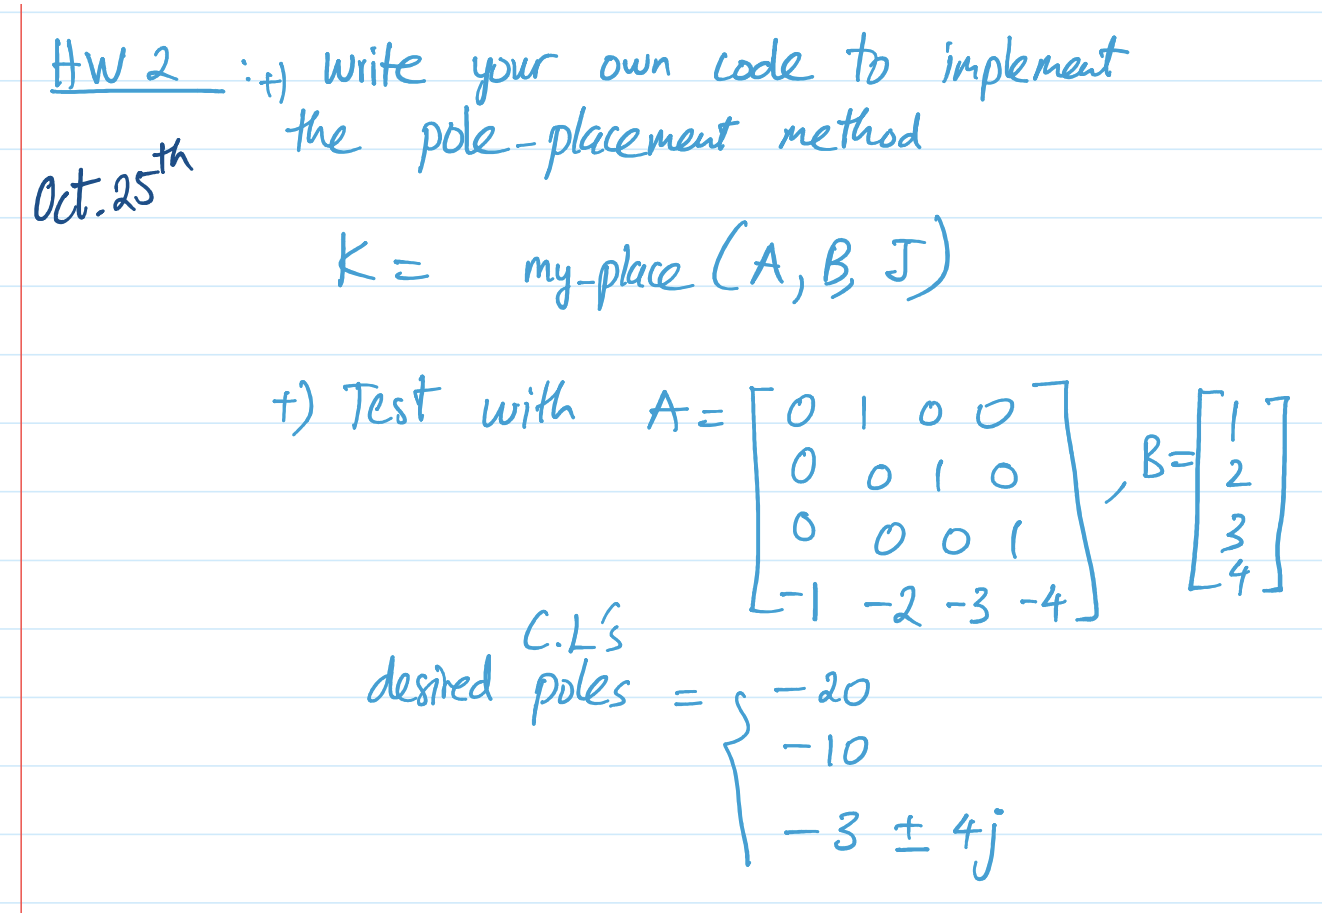 HW 2 : +) Write your own code to implement
the pole-placement method
Oct. 25th
K = my-place (A, B, J)
+) Test with A = [0 1 0 0
0 0 1 0
0 0 0 1
-1 -2 -3 -4] , B = [1
2
3
4]
C.L's
desired poles = { -20
-10
-3 ± 4j